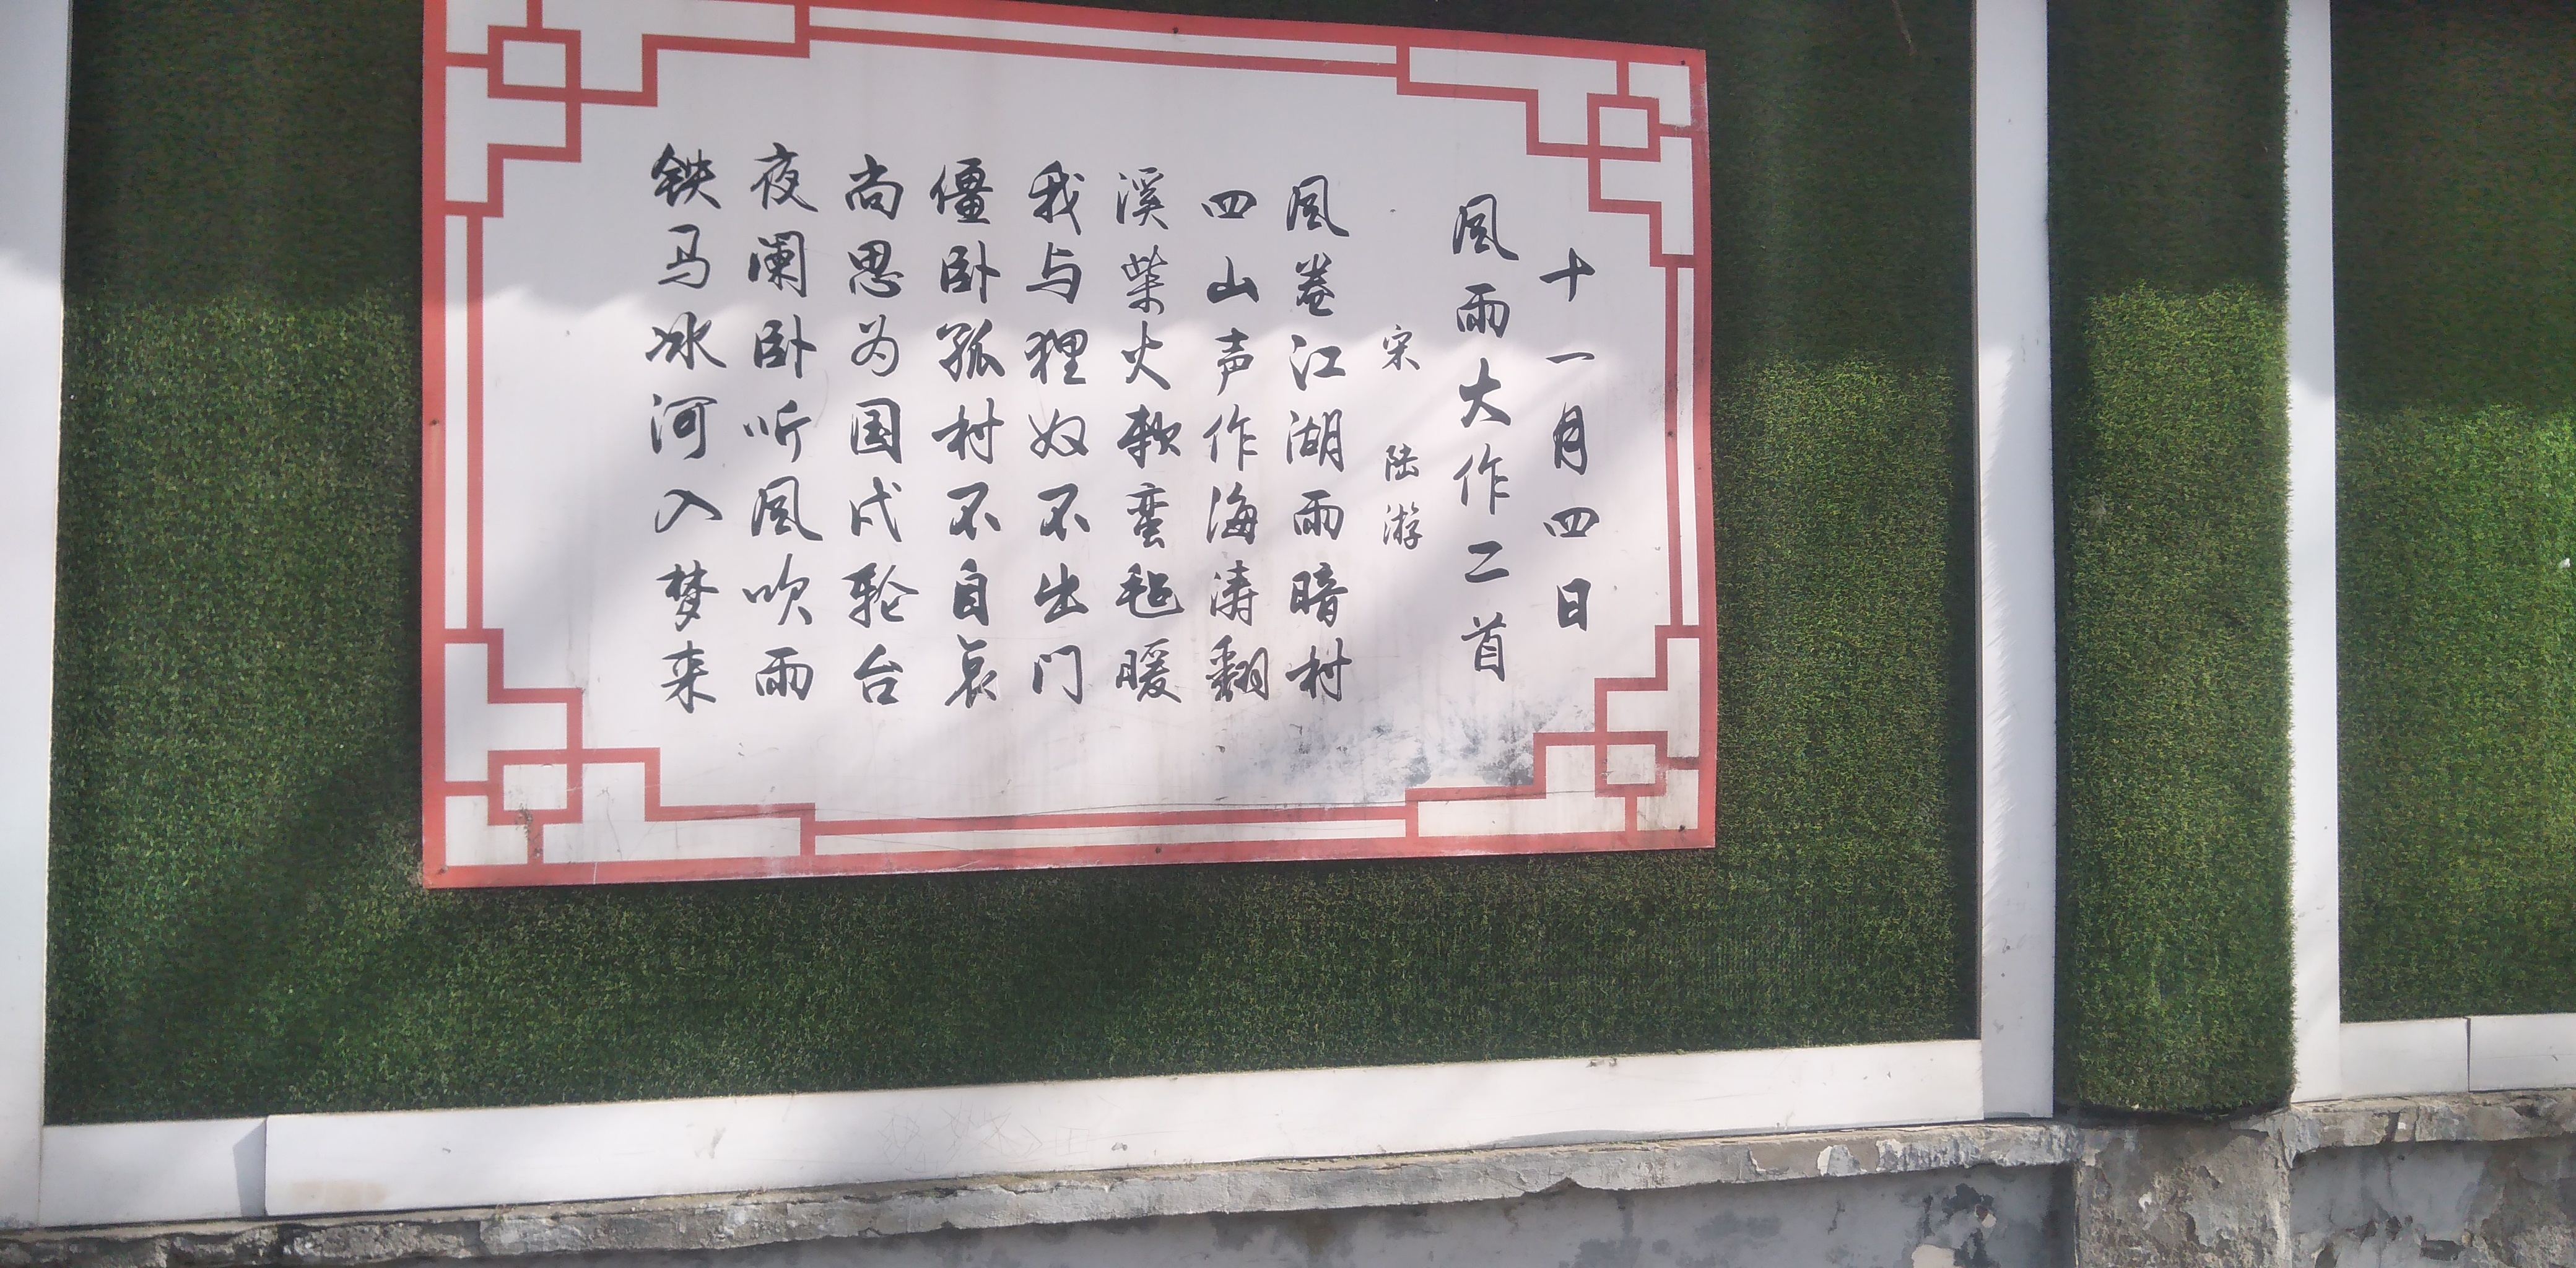 十一月四日
风雨大作二首
宋 陆游
风卷江湖雨暗村
四山声作海涛翻
溪柴火软蛮毡暖
我与狸奴不出门
僵卧孤村不自哀
尚思为国戍轮台
夜阑卧听风吹雨
铁马冰河入梦来